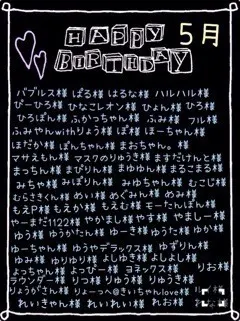 HAPPY 5月
BIRTHDAY
バブルス様 ぱる様 はるな様 ハルハル様
ぴーひろ様 ひなこレオン様 ひょん様 ひろ様
ひろぽん様 ふかっちゃん様 ふみ様 フル様
ふみやんwithりょう様 ぽ様 ほーちゃん様
ほだか様 ぽんちゃん様 まおちゃん。様
マサえもん様 マスクのりゅうき様 ますだけんと様
まっちん様 まぴりん様 まゆゆん様 まるこまる様
みちゃ様 みぽりん様 みゆちゃん様 むこじ様
むらさきくん様 めい様 めぐみん様 めめ様
もえP様 もえか様 もえむ様 モーたんぽん様
やーまだ1122様 ややかし様 やす様 やましー様
ゆう様 ゆうがたん様 ゆーき様 ゆうた様 ゆか様
ゆーちゃん様 ゆうやデラックス様 ゆずりん様
ゆみ様 ゆりゆり様 よしゆき様 よしよし様
よっちゃん様 よっぴー様 ヨネックス様 りお様
ラウンダー様 りつ様 りゅう様 りゅうき様
りょうがさん様 りょーっへ@きいちゃんlove様
れいきゃん様 れいれい様 れお様